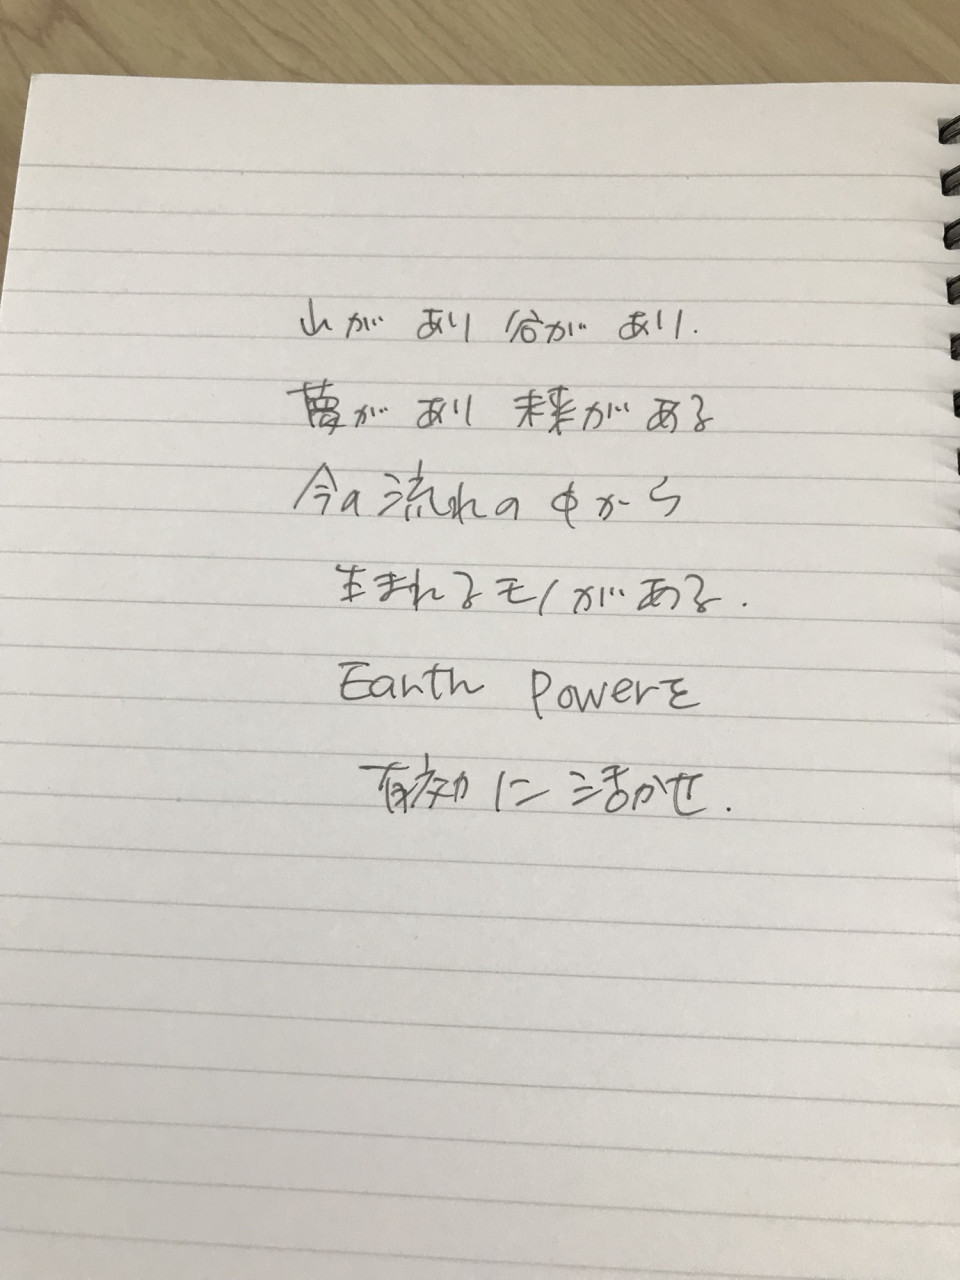 山があり谷があり.
夢があり未来がある
今の流れの中から
生まれるモノがある.
Earth Powerを
有効に活かせ.